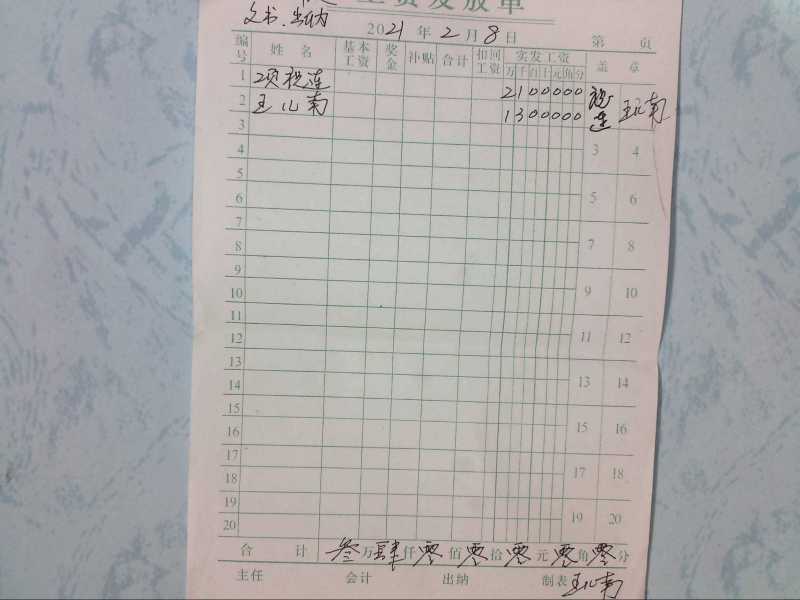 工资发放单
文书、出纳
2021年2月8日 第 页
编号 姓名 基本工资 奖金 补贴 合计 扣回工资 实发工资 万千百十元角分 盖章
1 项 连 2100000
2 王 南 1300000
3 3 4
4
5 5 6
6
7 7 8
8
9 9 10
10
11 11 12
12
13 13 14
14
15 15 16
16
17 17 18
18
19 19 20
20
合计 叁万肆仟零佰零拾零元零角零分
主任 会计 出纳 制表 王 南